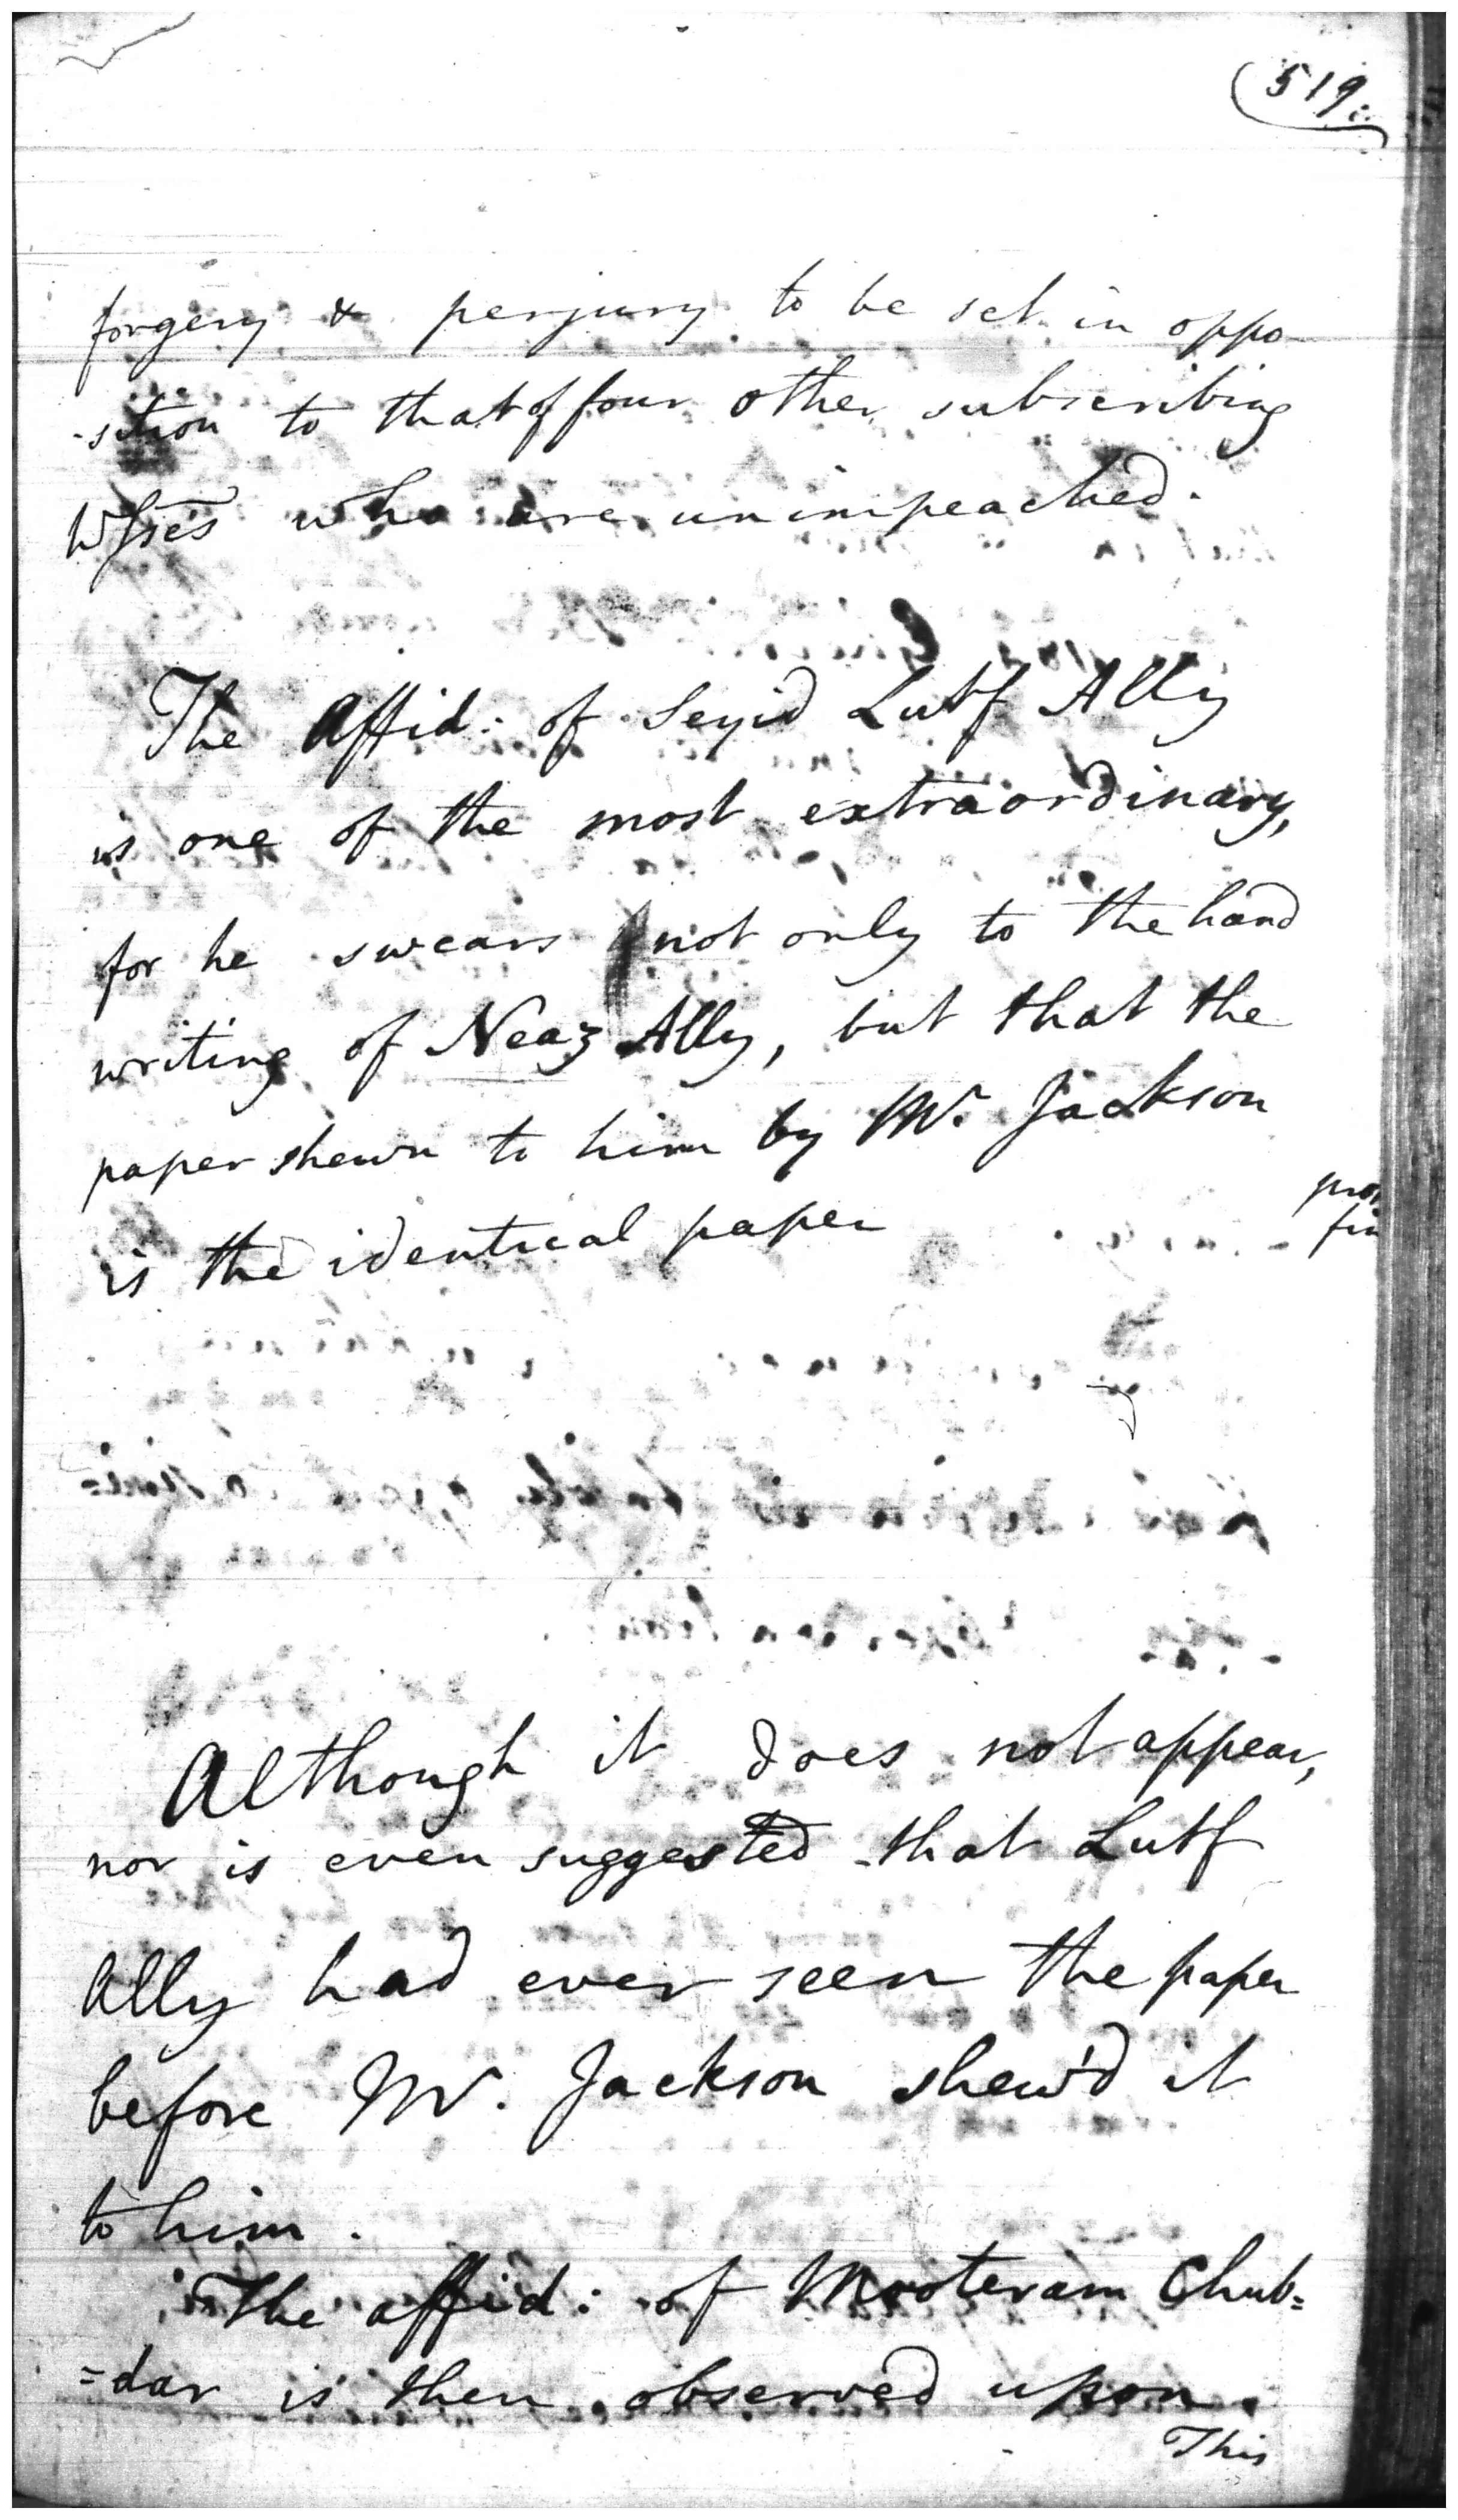 519
forgery & perjury to be set in oppo-
-sition to that of four other subscribing
Wsses who are unimpeached.
The Affid: of Seyid Lutf Ally
is one of the most extraordinary,
for he swears not only to the hand
writing of Neaz Ally, but that the
paper shewn to him by Mr. Jackson
is the identical paper
Although it does not appear,
nor is even suggested that Lutf
Ally had ever seen the paper
before Mr. Jackson shew'd it
to him.
The affid: of Mooteram Chub=
=dar is then observed upon.
This